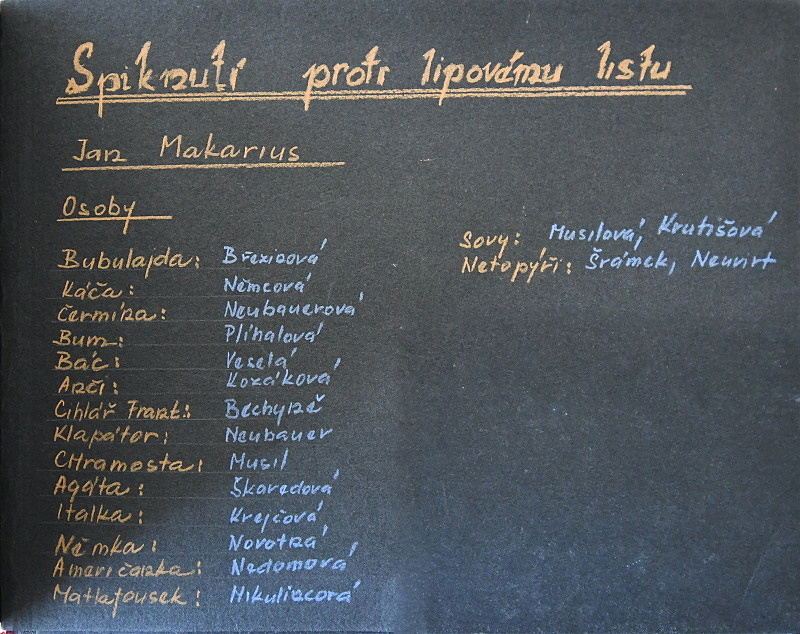 Spiknutí proti lipovému listu
Jan Makarius
Osoby
Bubulajda: Březinová
Káča: Němcová
Čermíza: Neubauerová
Bum: Plíhalová
Bác: Veselá
Anči: Kozáková
Cihlář Frant.: Bechyně
Klapátor: Neubauer
Chramosta: Musil
Agáta: Škaredová
Italka: Krejčová
Němka: Novotná
Američanka: Nedomová
Matlafousek: Mikulincová
Sovy: Musilová, Krutišová
Netopýři: Šrámek, Neuvirt